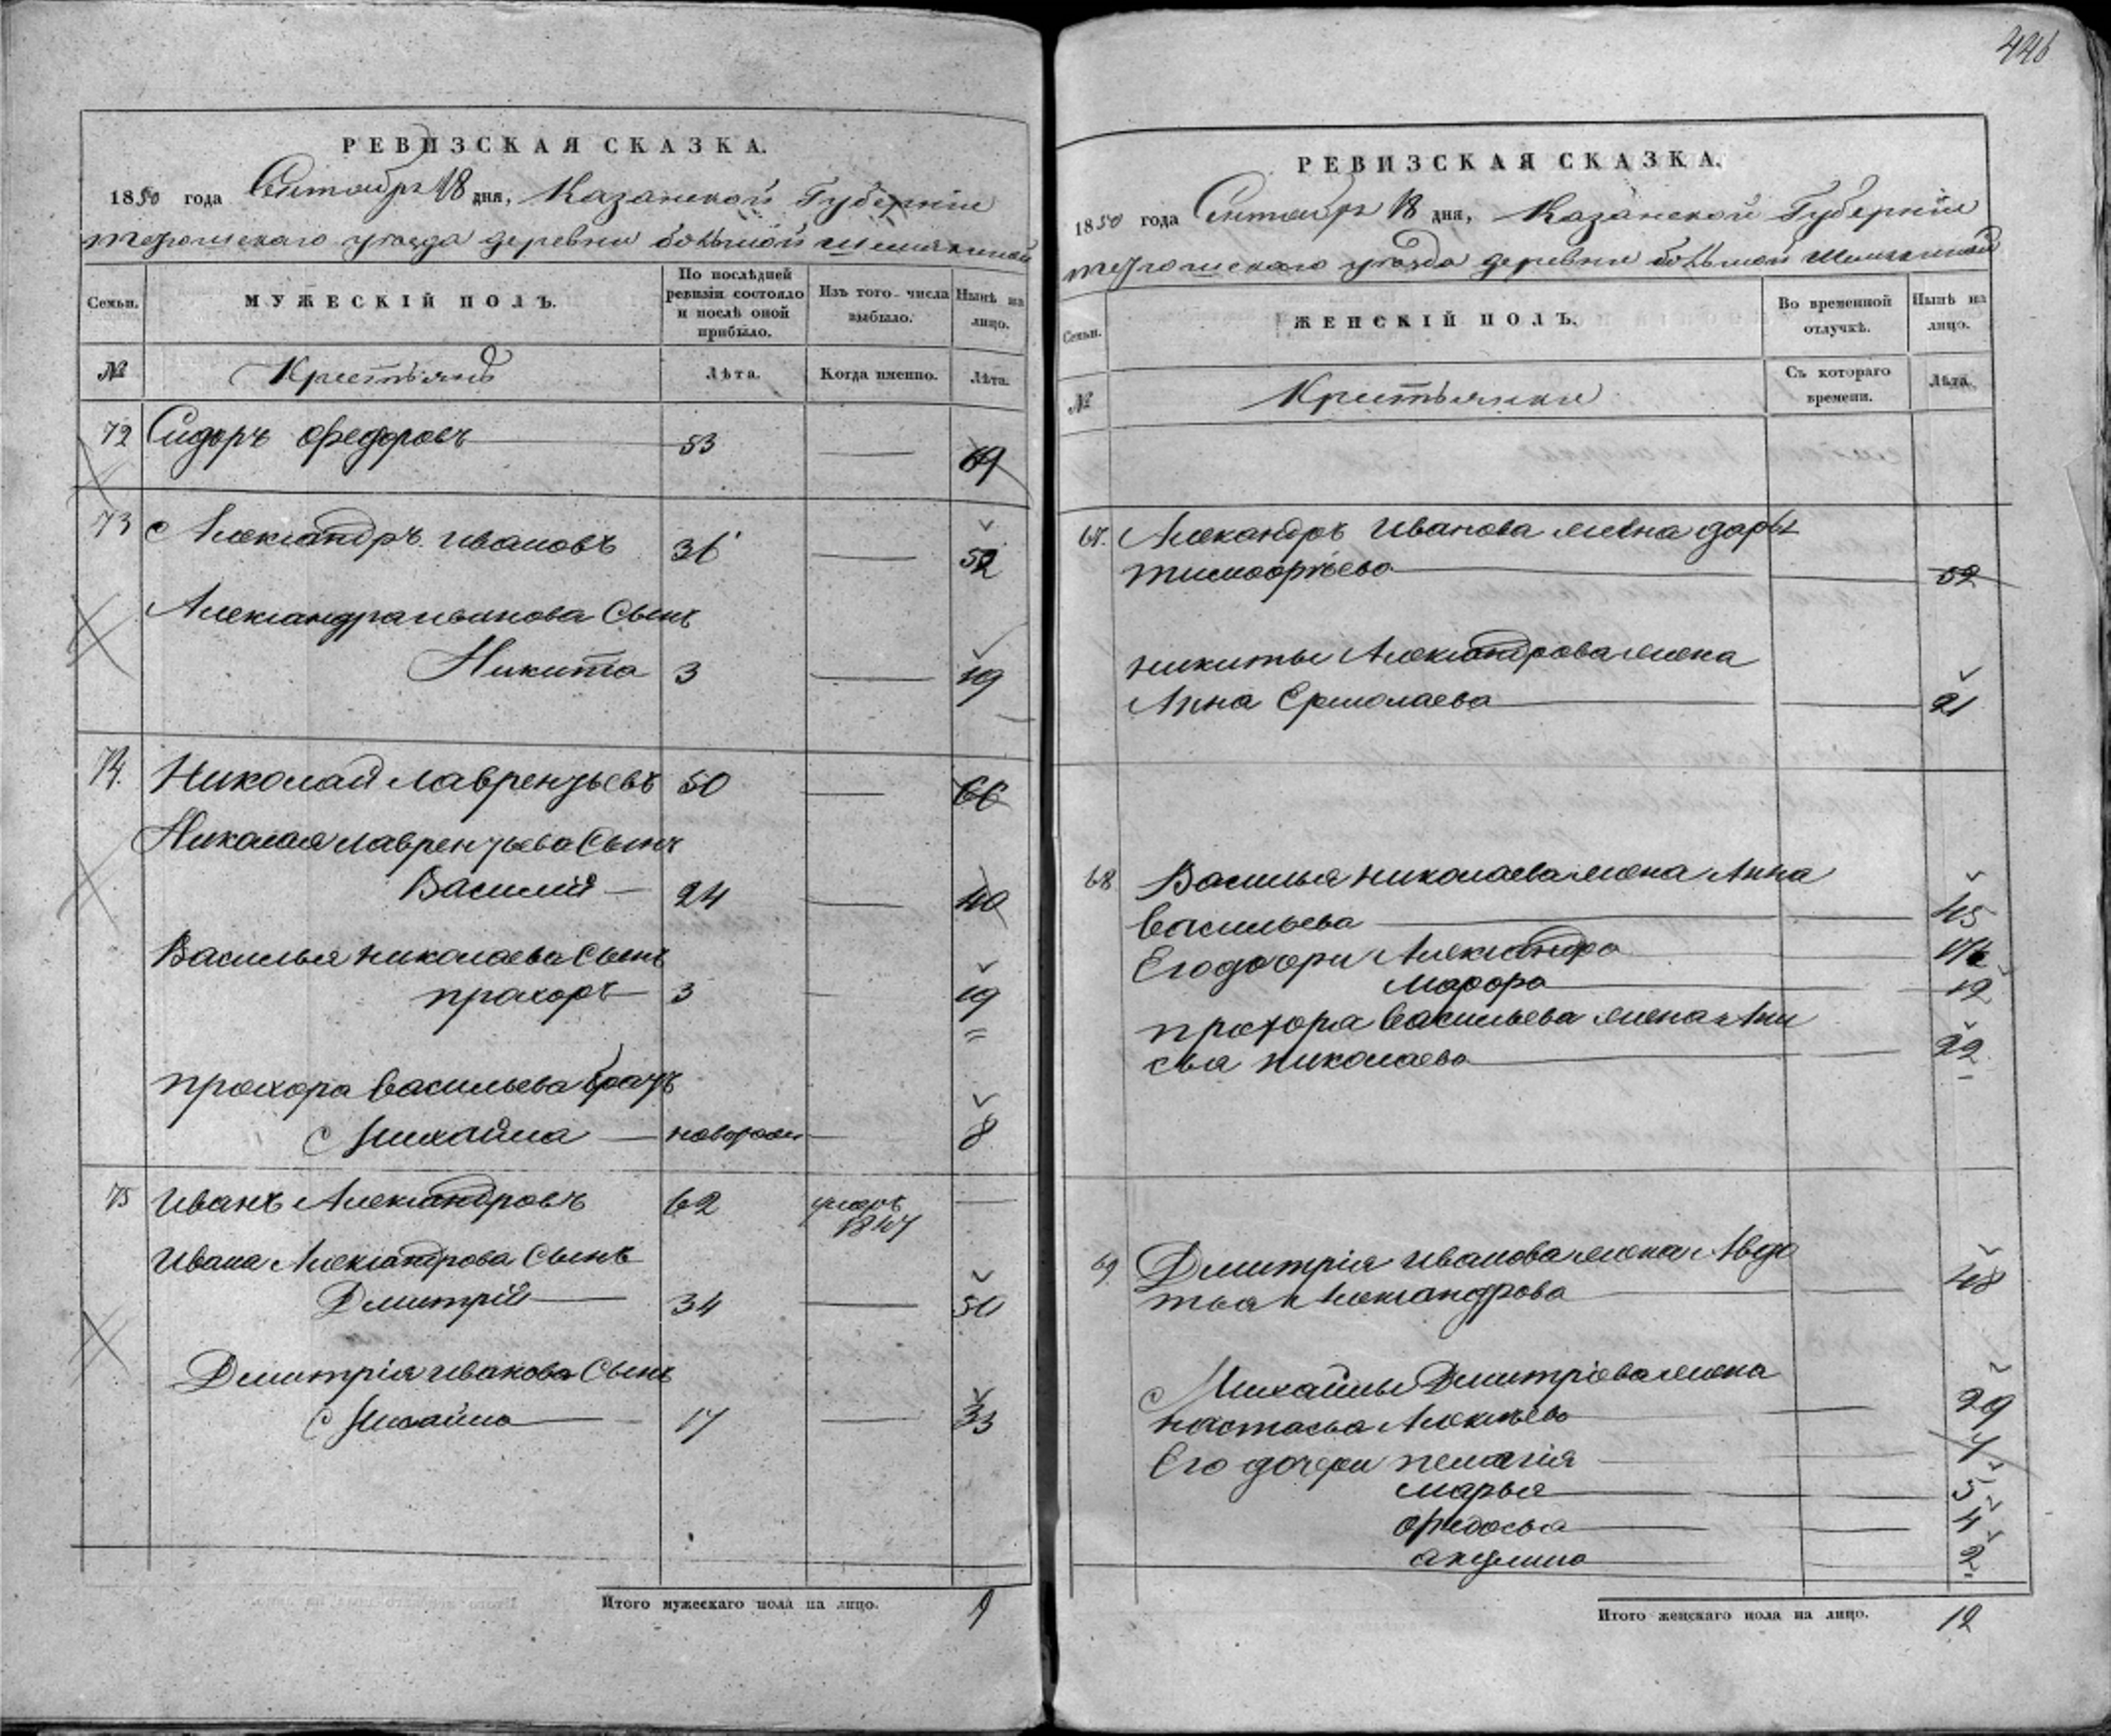 РЕВИЗСКАЯ СКАЗКА.
1850 года Сентября 18 дня, Казанской Губернии
уезда деревни большой
Семьи. МУЖЕСКІЙ ПОЛЪ. По послѣдней ревизіи состояло и послѣ оной прибыло. Изъ того числа выбыло. Нынѣ на лицо.
№ Крестьянъ Лѣта. Когда именно. Лѣта.
72 Сидоръ Федоровъ 53 — 69
73 Александръ Ивановъ 36 — 52
Александра Иванова Сынъ
Никита 3 — 19
74. Николай Лаврентьевъ 50 — 66
Николая Лаврентьева Сынъ
Василий — 24 — 40
Василья Николаева Сынъ
прохоръ — 3 — 19
прохора Васильева братъ
Михайла — новорож — 8
75 Иванъ Александровъ 62 умеръ 1847 —
Ивана Александрова Сынъ
Дмитрій — 34 — 50
Дмитрія Иванова Сынъ
Михайло — 17 — 33
Итого мужескаго пола на лицо. 9
446
РЕВИЗСКАЯ СКАЗКА.
1850 года Сентября 18 дня, Казанской Губернии
уезда деревни большой
Семьи. ЖЕНСКІЙ ПОЛЪ. Во временной отлучкѣ. Нынѣ на лицо.
№ Крестьянки Съ котораго времени. Лѣта.
67. Александръ Иванова жена дарья
тимофеева — — 52
никиты Александрова жена
Анна Ермолаева — — 21
68 Василья николаева жена Анна
Васильева — — 45
Его дочери Александра — —
Марфа — — 12
прохора Васильева жена Ани
сья николаева — — 22
69. Дмитрія Иванова жена Авдо
тья Александрова — — 48
Михайлы Дмитріева жена
настасья — — 29
Его дочери пелагія — — 7
марья — — 5
федосья — — 4
акулина — — 2
Итого женскаго пола на лицо. 12